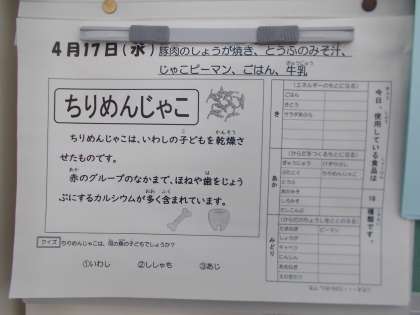 4月17日(水) 豚肉のしょうが焼き、とうふのみそ汁、
じゃこピーマン、ごはん、牛乳
ちりめんじゃこ
ちりめんじゃこは、いわしの子どもを乾燥さ
せたものです。
赤のグループのなかまで、ほねや歯をじょう
ぶにするカルシウムが多く含まれています。
クイズ ちりめんじゃこは、何の魚の子どもでしょうか?
①いわし ②ししゃも ③あじ
今日、使用している食品は
18
種類です。
き
(エネルギーのもとになる)
ごはん
さとう
サラダあぶら
あか
(からだをつくるもとになる)
ぎゅうにゅう
ちりめんじゃこ
とうふ
みどり
(からだのちょうしをととのえる)
ピーマン
しょうが
キャベツ
にんじん